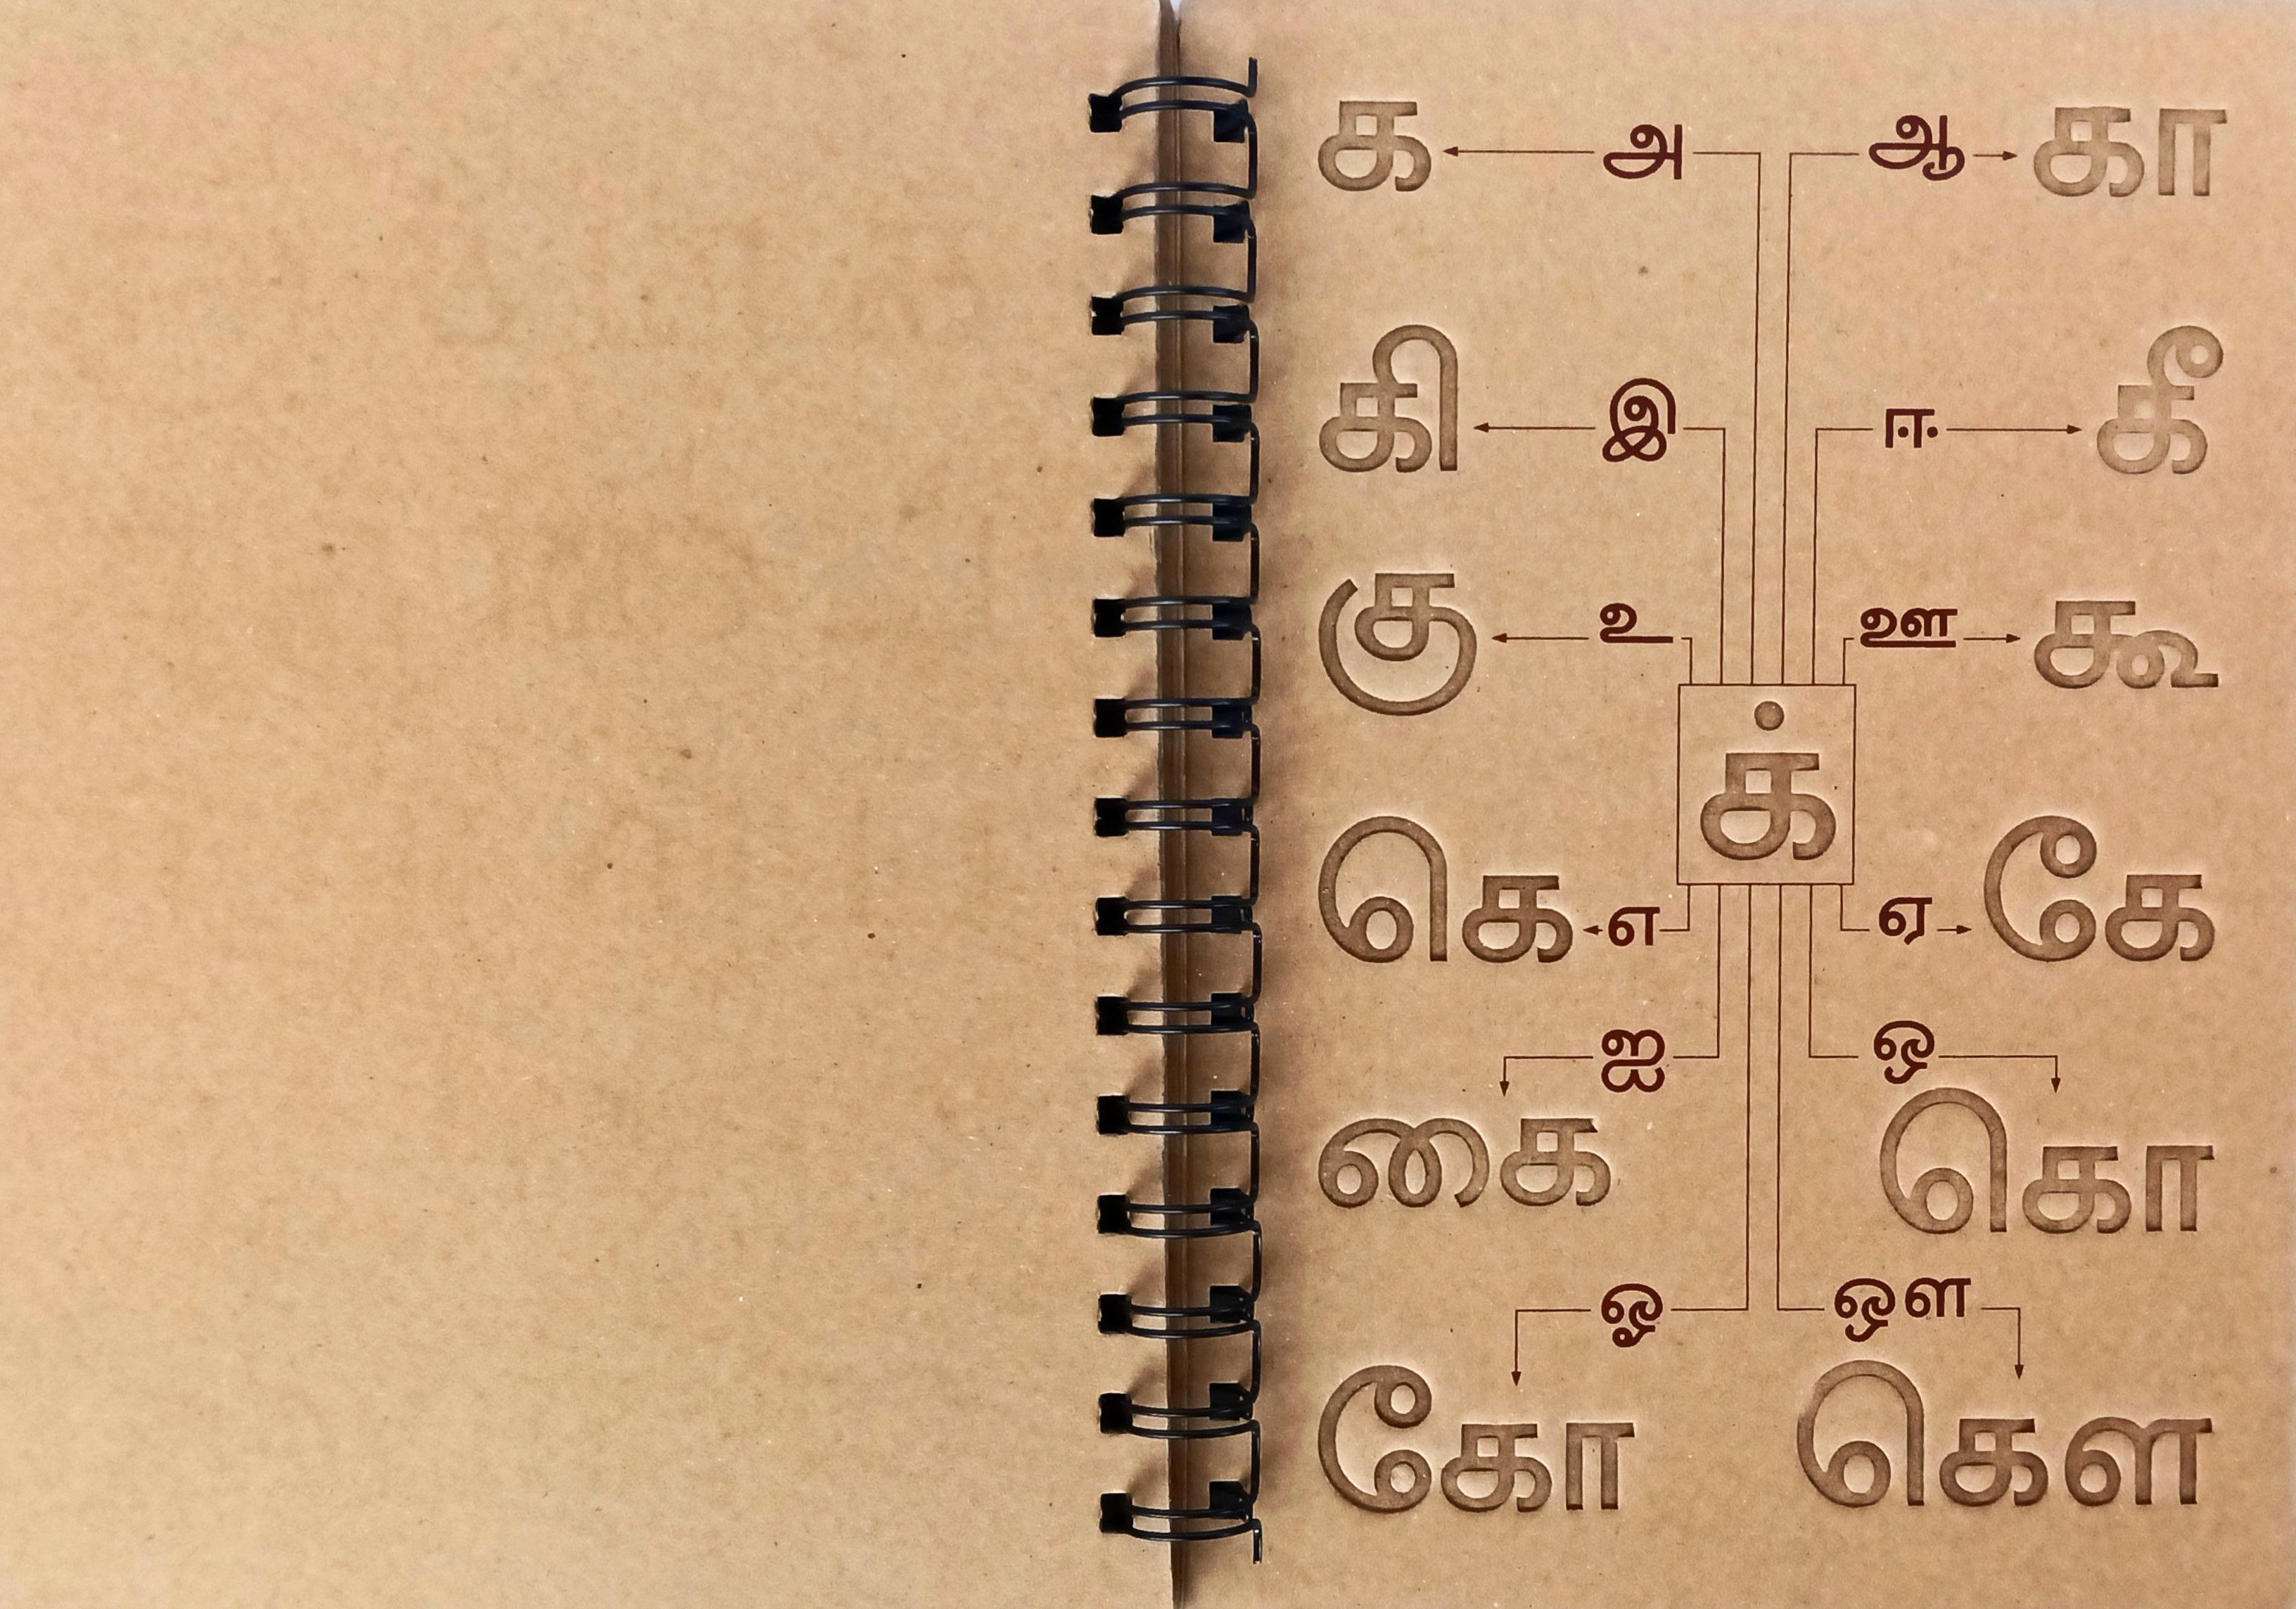 க அ ஆ கா
கி இ ஈ கீ
கு உ ஊ கூ
க்
கெ எ ஏ கே
ஐ ஒ
கை கொ
ஓ ஔ
கோ கௌ